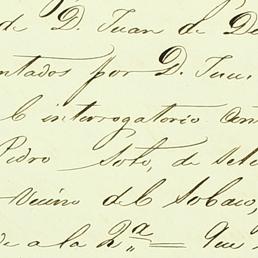 de D. Juan de De
ntados por D. Juu.
l interrogatorio
Pedro Soto, de
Vecino del Sobaco,
de a la 2ª = Que